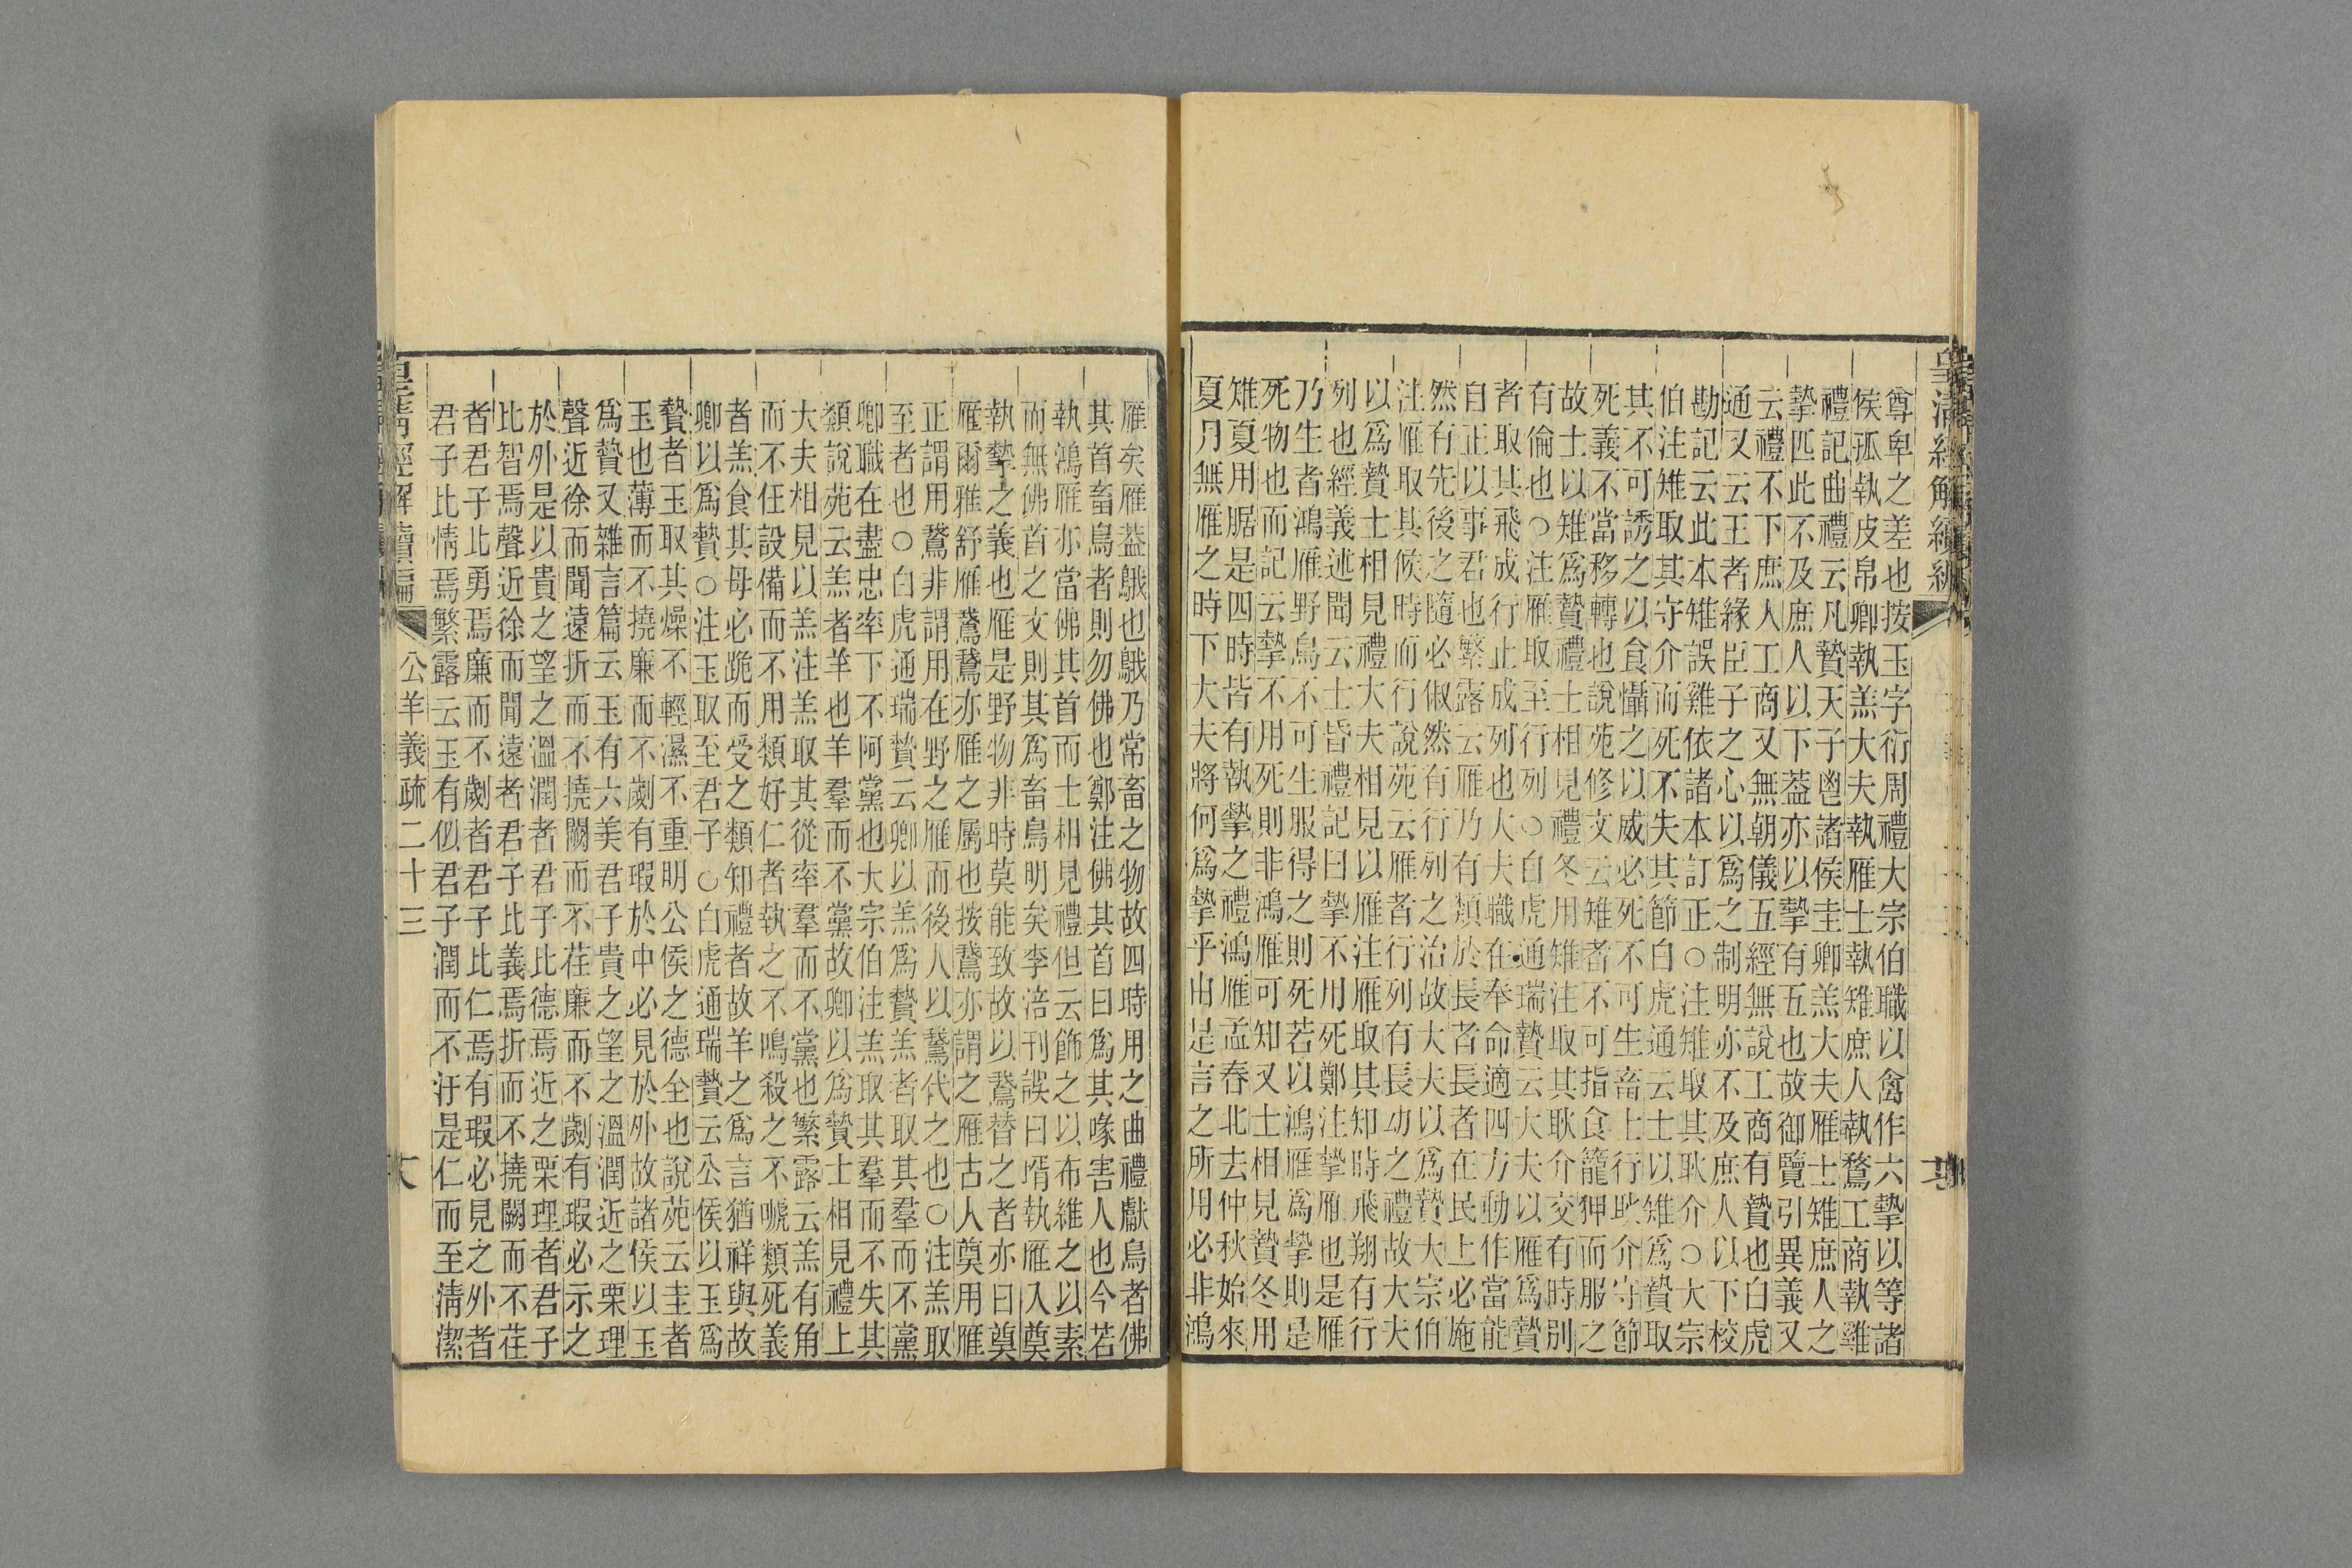 皇清經解續編
尊卑之差也按玉字衍周禮大宗伯職以禽作六摯以等諸
侯孤執皮帛卿執羔大夫執雁士執雉庶人執鶩工商執雞
禮記曲禮云凡贄天子鬯諸侯圭卿羔大夫雁士雉庶人之
摯匹此不及庶人以下葢亦以摯有五也故御覽引異義又
云禮不下庶人工商又無朝儀五經無說工商有贄也白虎
通又云王者緣臣子之心以爲之制明亦不及庶人以下校
勘記云此本雉誤雞依諸本訂正○注雉取其耿介○大宗
伯注雉取其守介而死不失其節白虎通云士以雉爲贄取
其不可誘之以食懾之以威必死不可生畜士行耿介守節
死義不當移轉也說苑修文云雉者不可指食籠狎而服之
故士以雉爲贄禮士相見禮冬用雉注取其耿介交有時別
有倫也○注雁取至行列○白虎通瑞贄云大夫以雁爲贄
者取其飛成行止成列也大夫職在奉命適四方動作當能
自正以事君也繁露云雁乃有類於長者長者在民上必施
然有先後之隨必俶然有行列之治故大夫以爲贄大宗伯
注雁取其候時而行說苑云雁者行列有長㓜之禮故大夫
以爲贄士相見禮大夫相見以雁注雁取其知時飛翔有行
列也經義述聞云士昏禮記曰摯不用死鄭注摯雁也是雁
乃生者鴻雁野鳥不可生服得之則死若以鴻雁爲摯則是
死物也而記云摯不用死則非鴻雁可知又士相見贄冬用
雉夏用腒是四時皆有執摯之禮鴻雁孟春北去仲秋始來
夏月無雁之時下大夫將何爲摯乎由是言之所用必非鴻
雁矣雁葢鵝也鵝乃常畜之物故四時用之曲禮獻鳥者佛
其首畜鳥者則勿佛也鄭注佛其首曰爲其喙害人也今若
執鴻雁亦當佛其首而士相見禮但云飾之以布維之以素
而無佛首之文則其爲畜鳥明矣李涪刊誤曰壻執雁入奠
執摯之義也雁是野物非時莫能致故以鵞替之者亦曰奠
雁爾雅舒雁鵞鵞亦雁之屬也按鵞亦謂之雁古人奠用雁
正謂用鵞非謂用在野之雁而後人以鵞代之也○注羔取
至者也○白虎通瑞贄云卿以羔爲贄羔者取其羣而不黨
卿職在盡忠率下不阿黨也大宗伯注羔取其羣而不失其
類說苑云羔者羊也羊羣而不黨故卿以爲贄士相見禮上
大夫相見以羔注羔取其從率羣而不黨也繁露云羔有角
而不任設備而不用類好仁者執之不鳴殺之不嗁類死義
者羔食其母必跪而受之類知禮者故羊之爲言猶祥與故
卿以爲贄○注玉取至君子○白虎通瑞贄云公侯以玉爲
贄者玉取其燥不輕濕不重明公侯之德全也說苑云圭者
玉也薄而不撓廉而不劌有瑕於中必見於外故諸侯以玉
爲贄又雜言篇云玉有六美君子貴之望之溫潤近之栗理
聲近徐而聞遠折而不撓闕而不荏廉而不劌有瑕必示之
於外是以貴之望之溫潤者君子比德焉近之栗理者君子
比智焉聲近徐而聞遠者君子比義焉折而不撓闕而不荏
者君子比勇焉廉而不劌者君子比仁焉有瑕必見之外者
君子比情焉繁露云玉有似君子潤而不汙是仁而至清潔
皇清經解續編 公羊義疏二十三